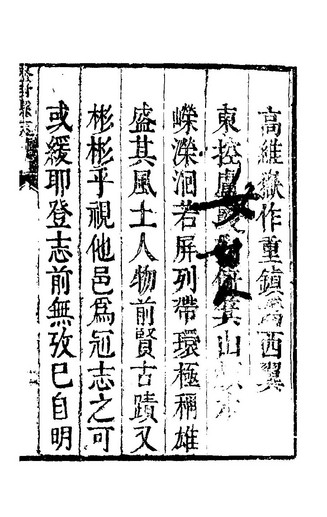 高維嶽作重鎮西翼
東控箕山
嶸濼洄若屏列帶環極稱雄
盛其風土人物前賢古蹟又
彬彬乎視他邑爲冠志之可
或緩耶登志前無攷已自明